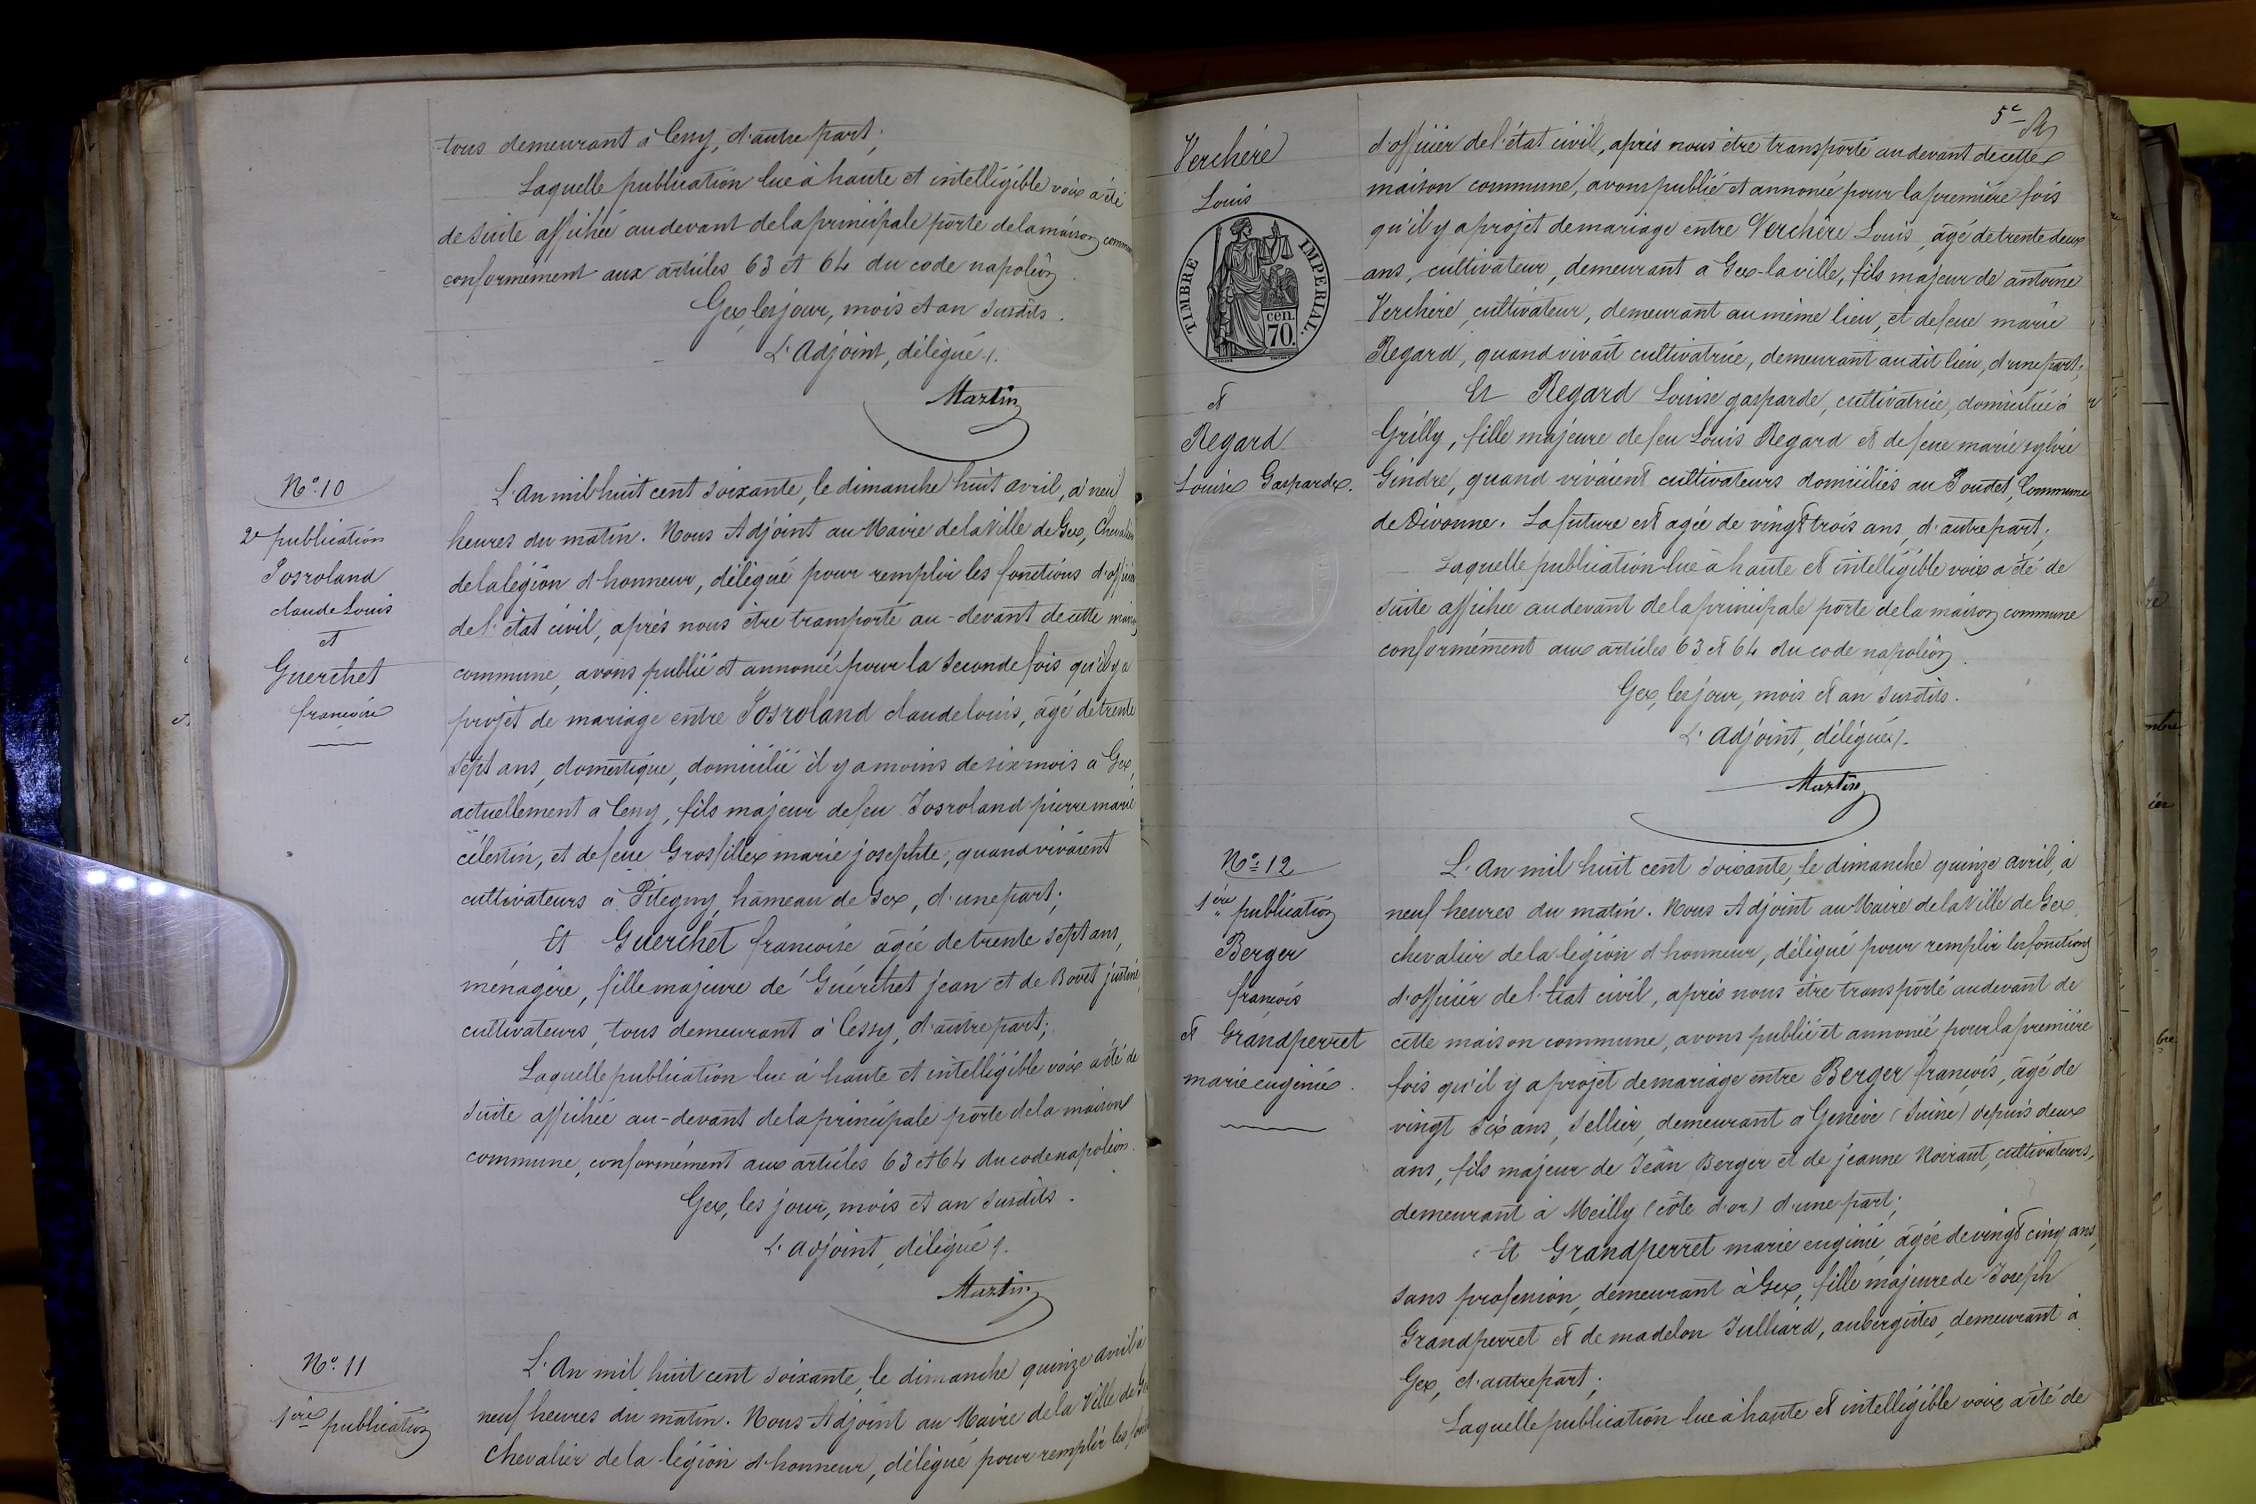 tous demeurant à Cessy, d'autre part;
Laquelle publication lue à haute et intelligible voix a été
de suite affichée au devant de la principale porte de la maison commune
conformément aux articles 63 et 64 du code napoléon.
Gex, les jour, mois et an susdits.
L'Adjoint, délégué /.
Martin
N.° 10
2e publication
Josroland
claude Louis
et
Guerchet
francoise
L'An mil huit cent soixante, le dimanche huit avril, à neuf
heures du matin. Nous Adjoint au Maire de la Ville de Gex, Chevalier
de la légion d'honneur, délégué pour remplir les fonctions d'officier
de l'état civil, après nous être transporté au-devant de cette maison
commune, avons publié et annoncé pour la seconde fois qu'il y a
projet de mariage entre Josroland claude louis, âgé de trente
sept ans, domestique, domicilié il y a moins de six mois à Gex,
actuellement à Cessy, fils majeur de feu Josroland pierre marie
célestin, et de feue Grosfillex marie josephte, quand vivaient
cultivateurs à Pitegny, hameau de Gex, d'une part;
Et Guerchet francoise âgée de trente sept ans,
ménagère, fille majeure de Guerchet jean et de Bovet justine,
cultivateurs, tous demeurant à Cessy, d'autre part;
Laquelle publication lue à haute et intelligible voix a été de
suite affichée au-devant de la principale porte de la maison
commune, conformément aux articles 63 et 64 du code napoléon.
Gex, les jour, mois et an susdits.
L'adjoint, délégué /.
Martin
N.° 11
1ère publication
L'An mil huit cent soixante, le dimanche quinze avril à
neuf heures du matin. Nous Adjoint au Maire de la Ville de Gex
Chevalier de la légion d'honneur, délégué pour remplir les fonctions
5e
Verchère
Louis
TIMBRE IMPERIAL.
cen.
70.
et
Regard
Louise Gasparde.
d'officier de l'état civil, après nous être transporté au devant de cette
maison commune, avons publié et annoncé pour la première fois
qu'il y a projet de mariage entre Verchère Louis, âgé de trente deux
ans, cultivateur, demeurant à Gex-la ville, fils majeur de antoine
Verchère, cultivateur, demeurant au même lieu, et de feue marie
Regard, quand vivait cultivatrice, demeurant au dit lieu, d'une part;
Et Regard Louise gasparde, cultivatrice, domiciliée à
Grilly, fille majeure de feu Louis Regard et de feue marie sylvie
Gindre, quand vivaient cultivateurs domiciliés au Poudet, Commune
de Divonne. La future est agée de vingt trois ans, d'autre part;
Laquelle publication lue à haute et intelligible voix a été de
suite affichée au devant de la principale porte de la maison commune
conformément aux articles 63 et 64 du code napoléon.
Gex, les jour, mois et an susdits.
L'adjoint, délégué /.
Martin
N.° 12
1ère publication
Berger
francois
et Grandperret
marie eugénie.
L'An mil huit cent soixante, le dimanche quinze avril, à
neuf heures du matin. Nous Adjoint au Maire de la Ville de Gex,
chevalier de la légion d'honneur, délégué pour remplir les fonctions
d'officier de l'état civil, après nous être transporté au devant de
cette maison commune, avons publié et annoncé pour la première
fois qu'il y a projet de mariage entre Berger francois, âgé de
vingt six ans, sellier, demeurant à Genève (Suisse) depuis deux
ans, fils majeur de Jean Berger et de jeanne Noirant, cultivateurs,
demeurant à Meilly (côte d'or) d'une part;
Et Grandperret marie eugénie, âgée de vingt cinq ans,
sans profession, demeurant à Gex, fille majeure de Joseph
Grandperret et de madelon Julliard, aubergistes, demeurant à
Gex, d'autre part;
Laquelle publication lue à haute et intelligible voix a été de